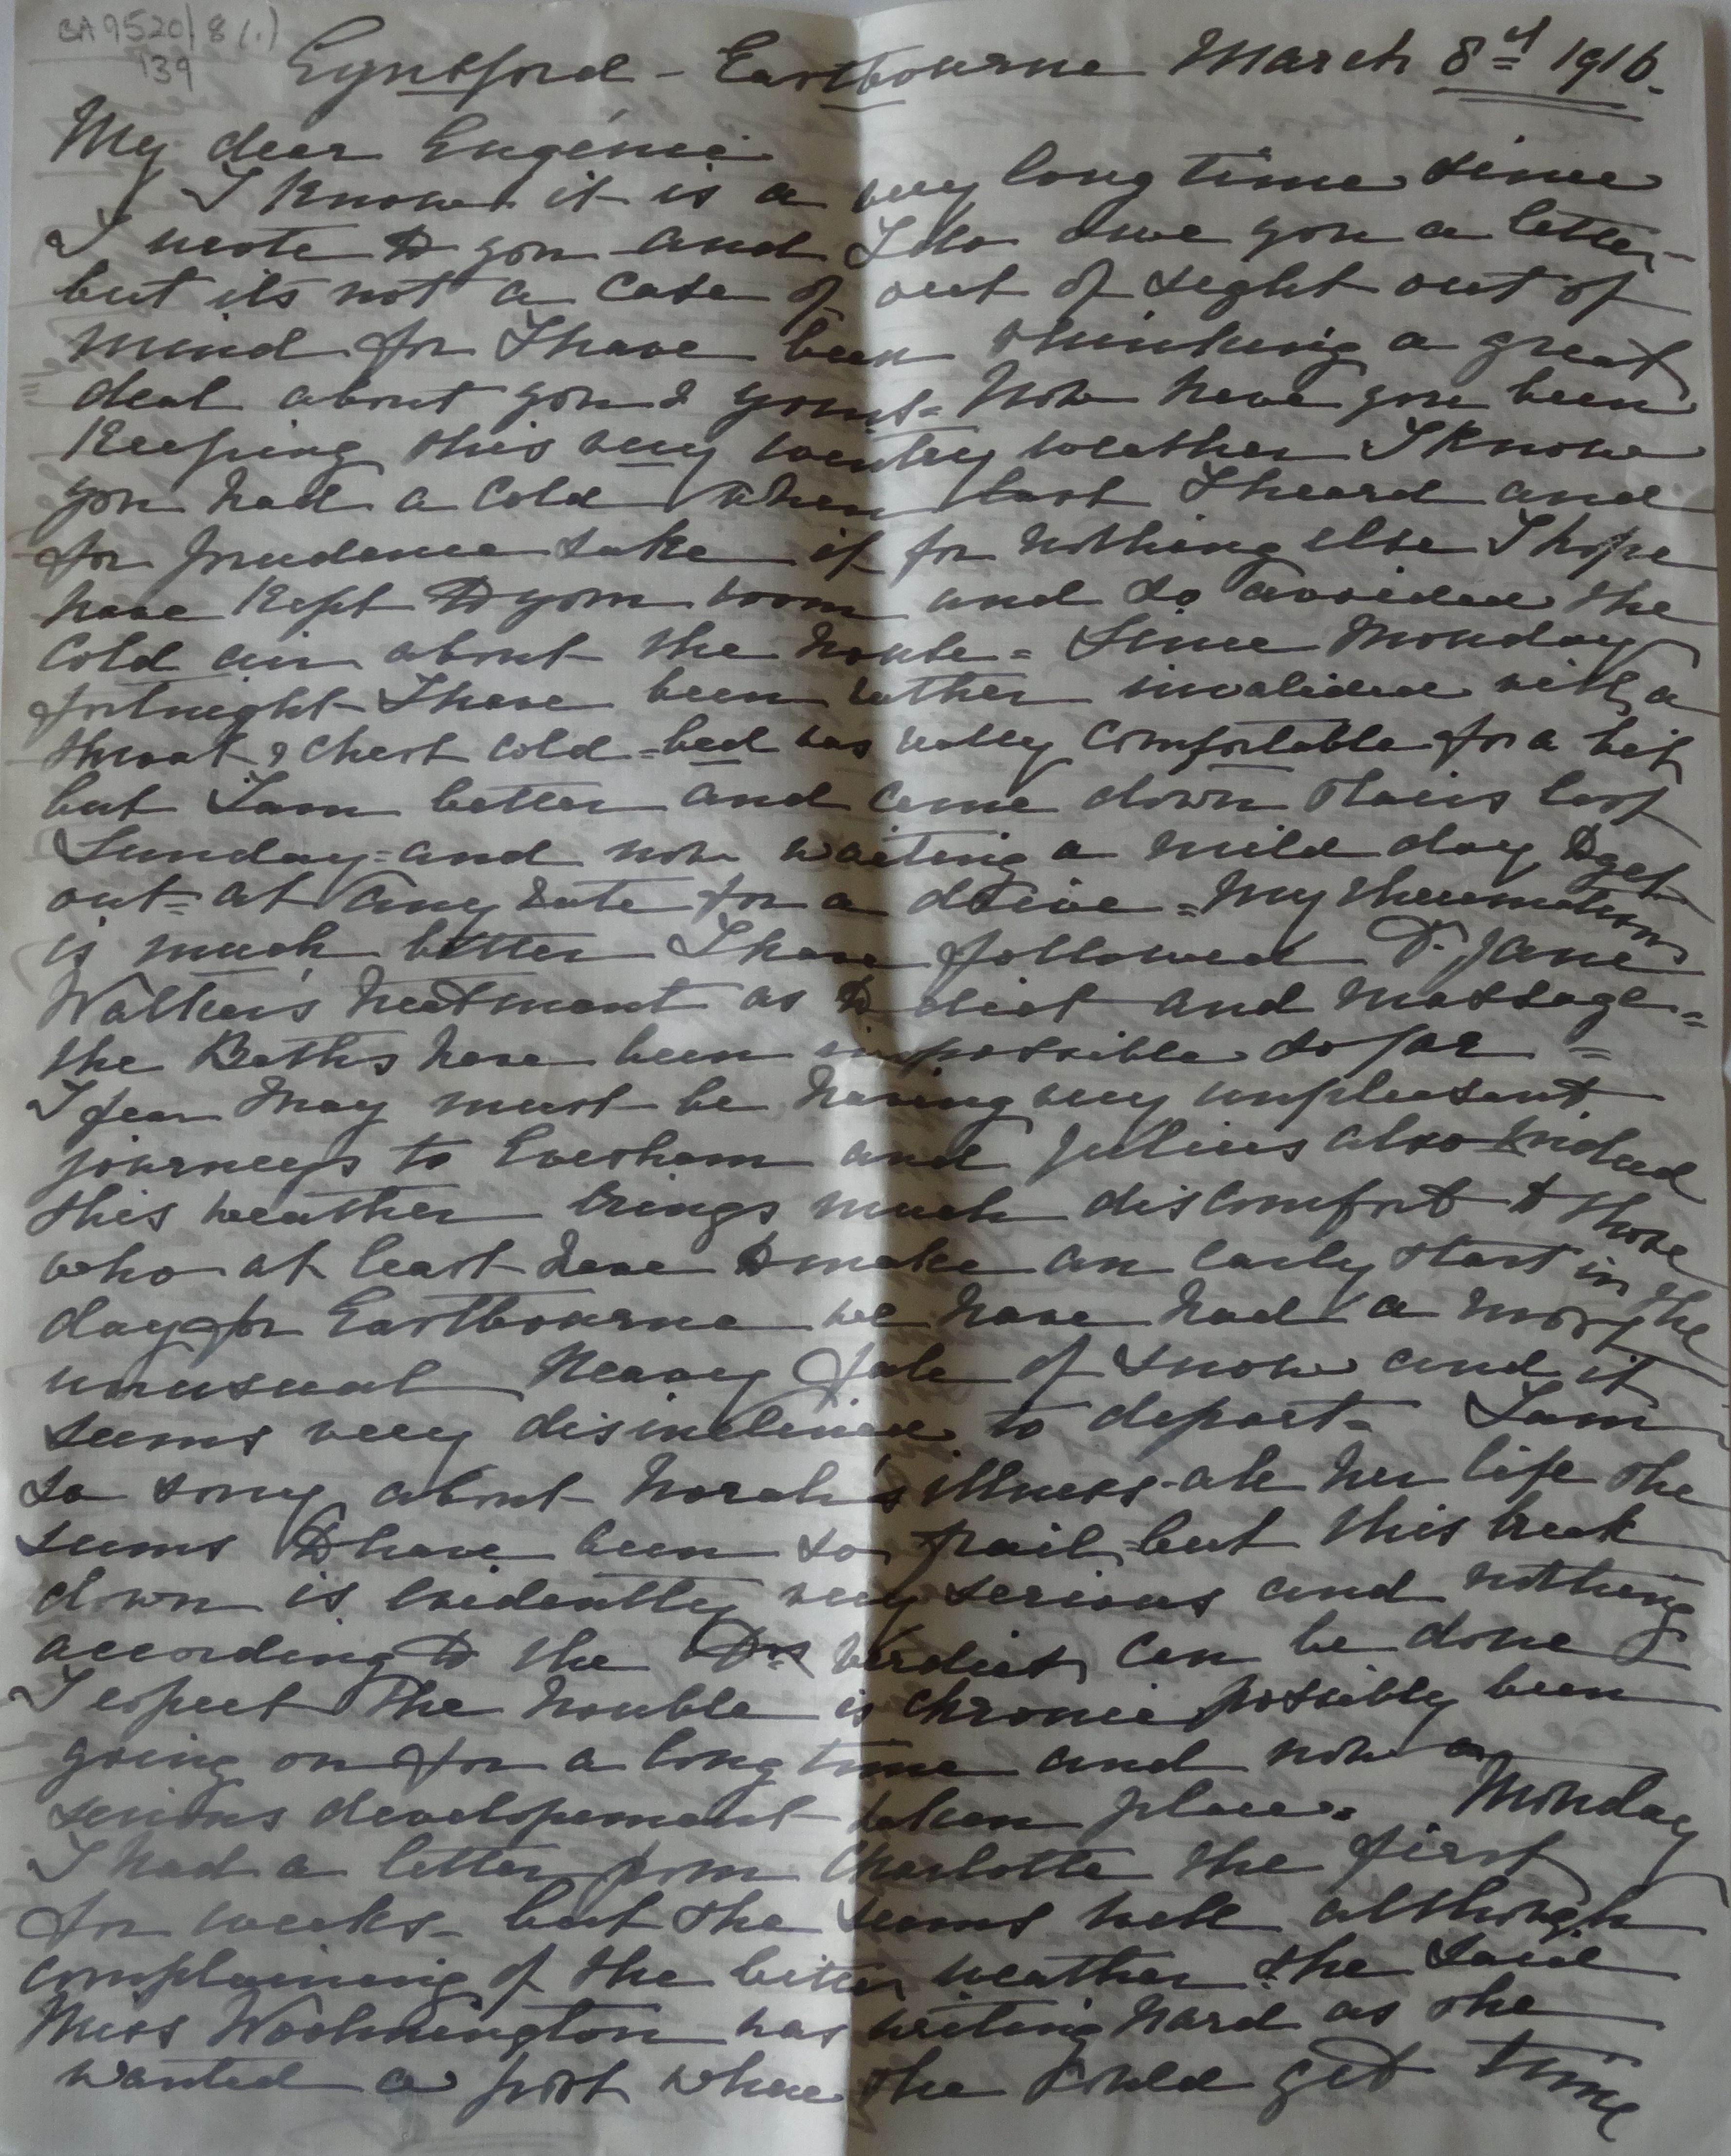 BA9520/8(1)
139
Eynsford - Eastbourne March 8th 1916.
My dear Eugénie
I know it is a very long time since
I wrote to you and I do owe you a letter -
but its not a case of out of sight out of
mind for I have been thinking a great
deal about you & yours = How have you been
keeping this very wintry weather I know
you had a cold when last I heard and
for prudence sake if for nothing else I hope
have kept to your room and so avoided the
cold air about the house = Since Monday
fortnight I have been rather invalided with a
throat & chest cold - bed was really comfortable for a bit
but I am better and came down stairs last
Sunday = and now waiting a mild day to get
out = at any rate for a drive = My rheumatism
is much better I have followed Dr. Jane
Walker's treatment as to diet and massage =
the Baths have been impossible so far =
I fear May must be having very unpleasant
journeys to Evesham and Julius also indeed
this weather brings much discomfort to those
who at least have to make an early start in the
day for Eastbourne we have had a most
unusual heavy fall of snow and it
seems very disinclined to depart = I am
so sorry about Norah's illness - all her life she
seems to have been so frail - but this break
down is evidently very serious and nothing
according to the Drs verdict can be done
I expect the trouble is chronic possibly been
going on for a long time and now a
serious developement taken place. Monday
I had a letter from Charlotte the first
for weeks - but she seems well although
complaining of the bitter weather she said
Miss was writing hard as she
wanted a post where she could get time